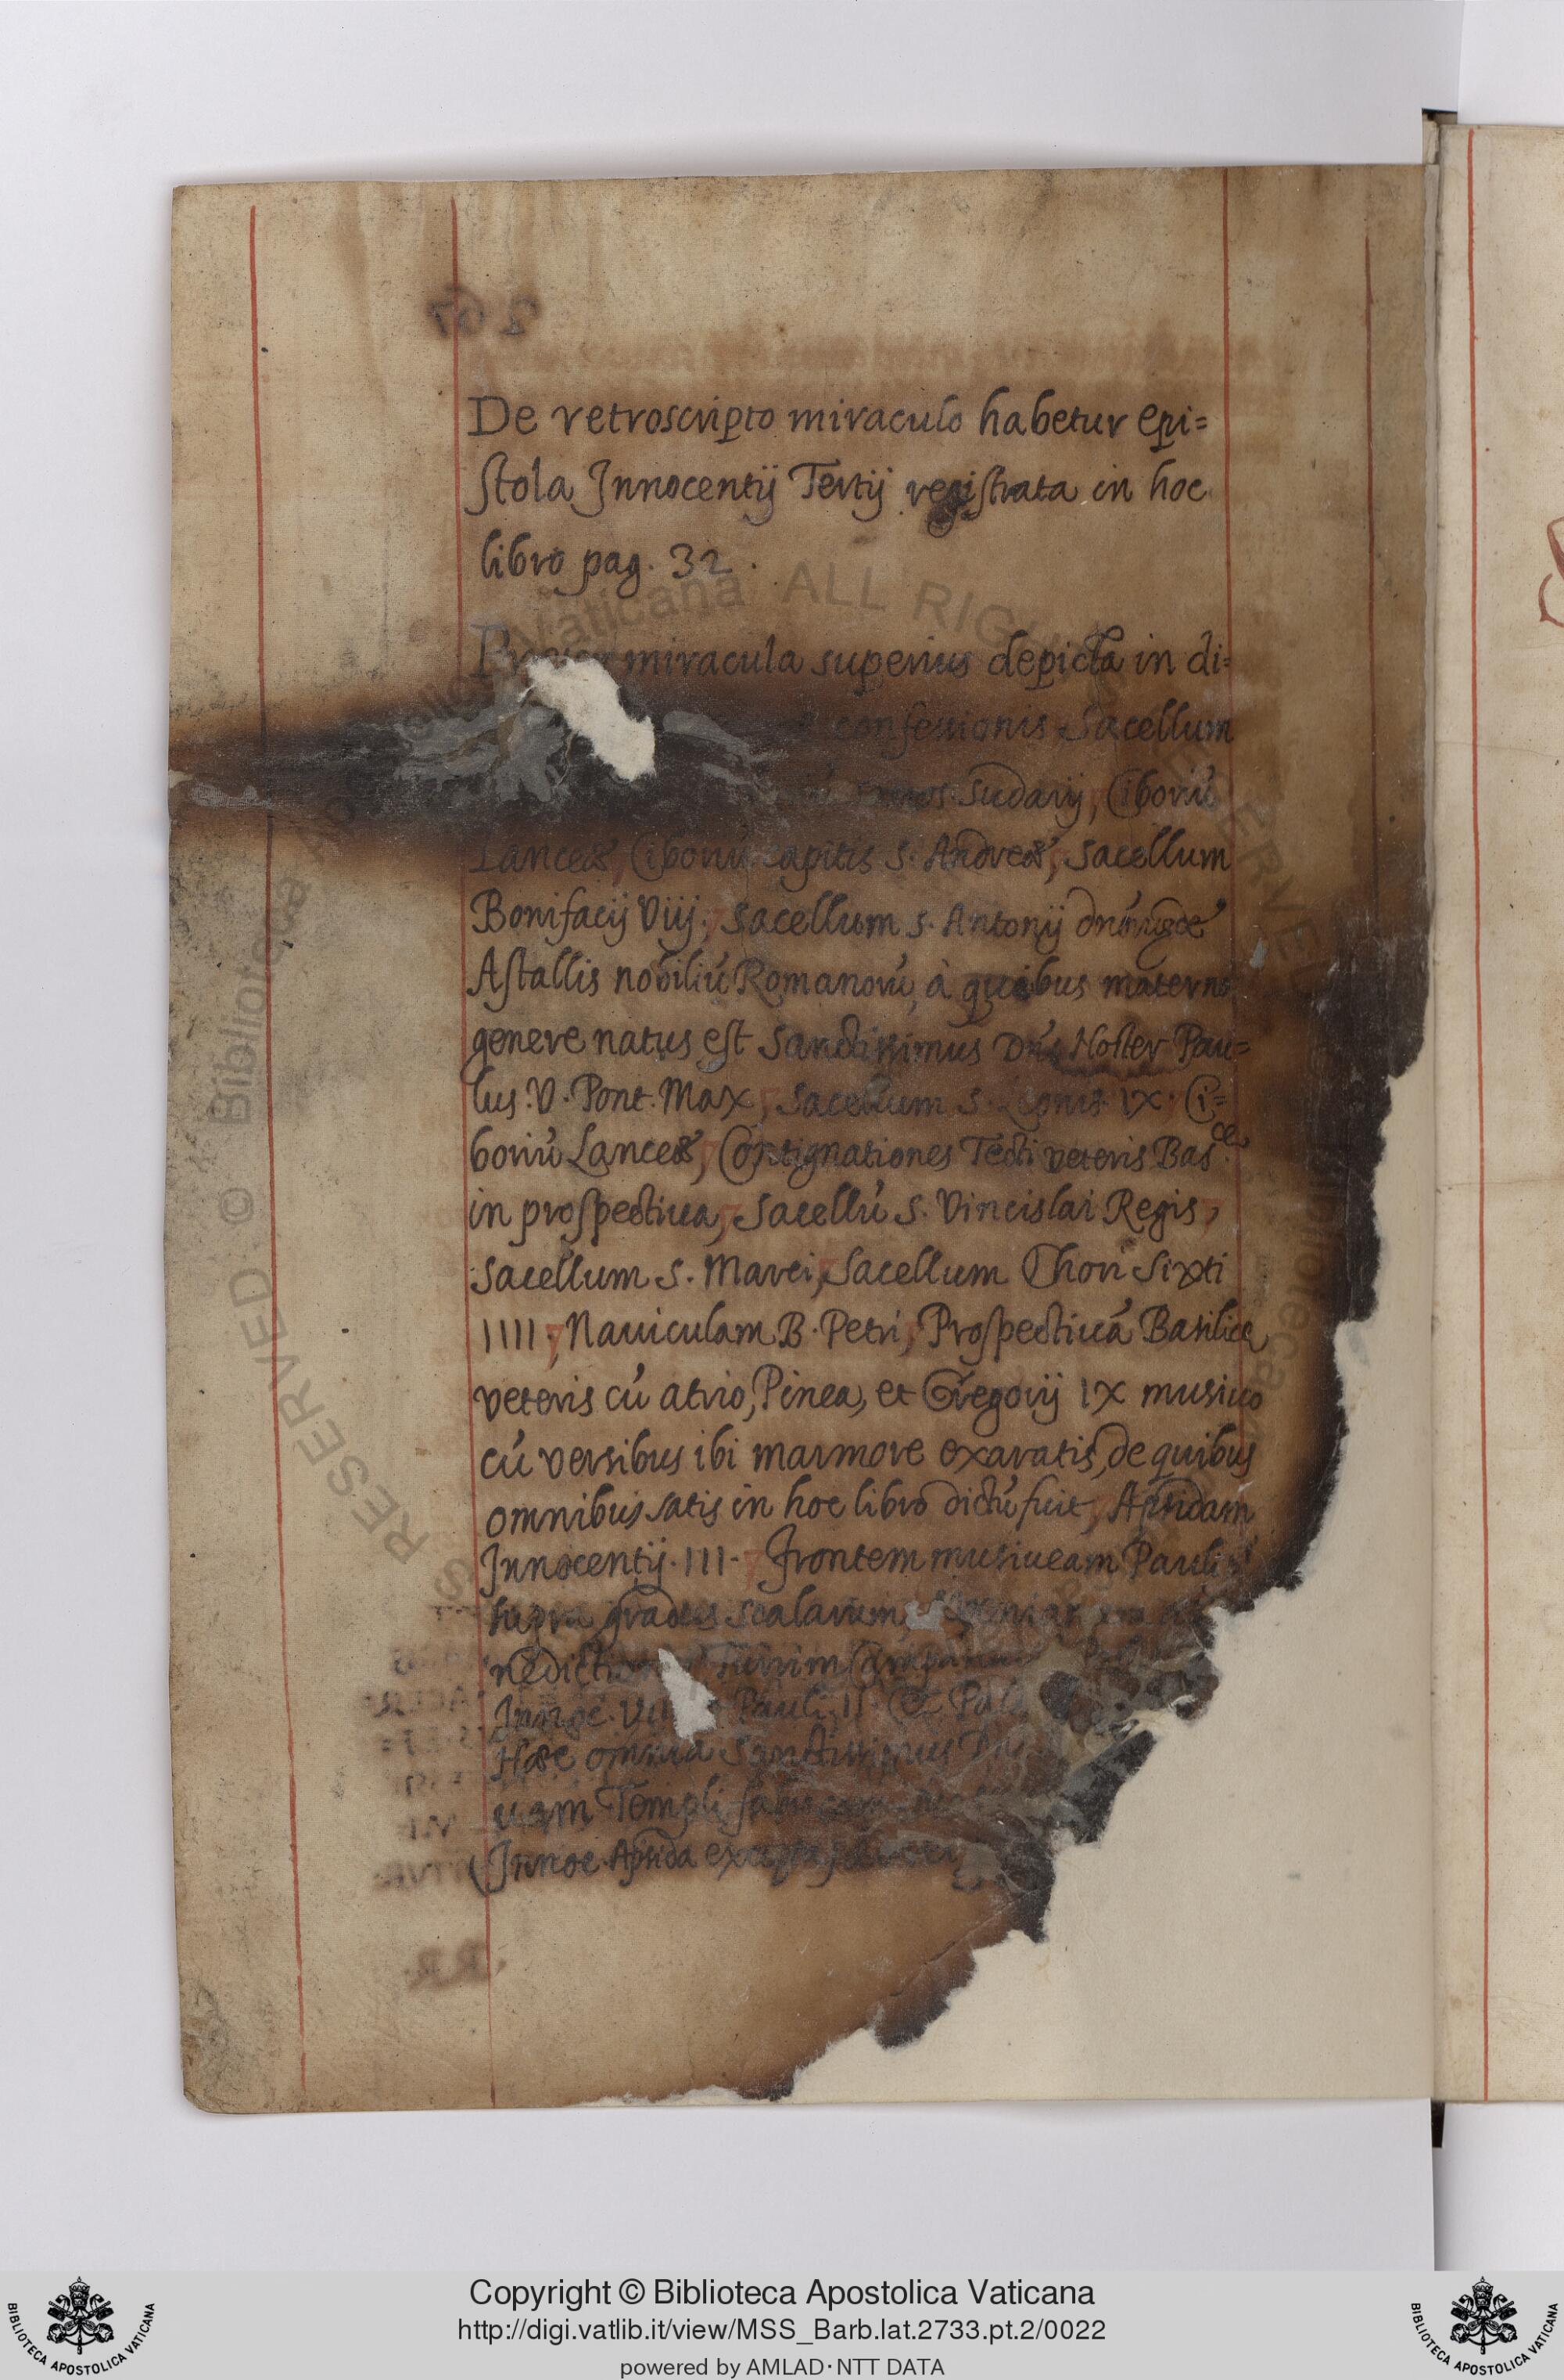 De retroscripto miraculo habetur epi=
stola Innocentij Tertij registrata in hoc
libro pag. 32.
miracula superius depicta in di=
confessionis, Sacellum
Sudarij, Ciboriú
Lanceæ, Ciboriú capitis S. Andreæ, Sacellum
Bonifacij Viij, Sacellum S. Antonij
Astallis nobiliú Romanorú, à quibus materno
genere natus est Sanctissimus Dńs Noster Pau=
lus. V. Pont. Max, Sacellum S. Leonis IX. Ci=
boriú Lanceæ, Contignationes Tecti veteris Bas.cæ
in prospectiua, Sacellú S. Vincislai Regis,
Sacellum S. Marci, Sacellum Chori Sixti
IIII., Nauiculam B. Petri, Prospectiuá Basilicæ
veteris cú atrio, Pinea, et Gregorij IX musiuo
cú versibus ibi marmore exaratis, de quibus
omnibus satis in hoc libro dictú fuit, Apsidam
Innocentij. III. Frontem musiueam Pauli
supra gradus scalarum,
Turrim
Innoc. Pauli II. et
Hæc omnia Sanctissimus
uam Templi fabricam
(Innoc. Apsida excepta)
267
Copyright © Biblioteca Apostolica Vaticana
http://digi.vatlib.it/view/MSS_Barb.lat.2733.pt.2/0022
powered by AMLAD·NTT DATA
BIBLIOTECA APOSTOLICA VATICANA
BIBLIOTECA APOSTOLICA VATICANA